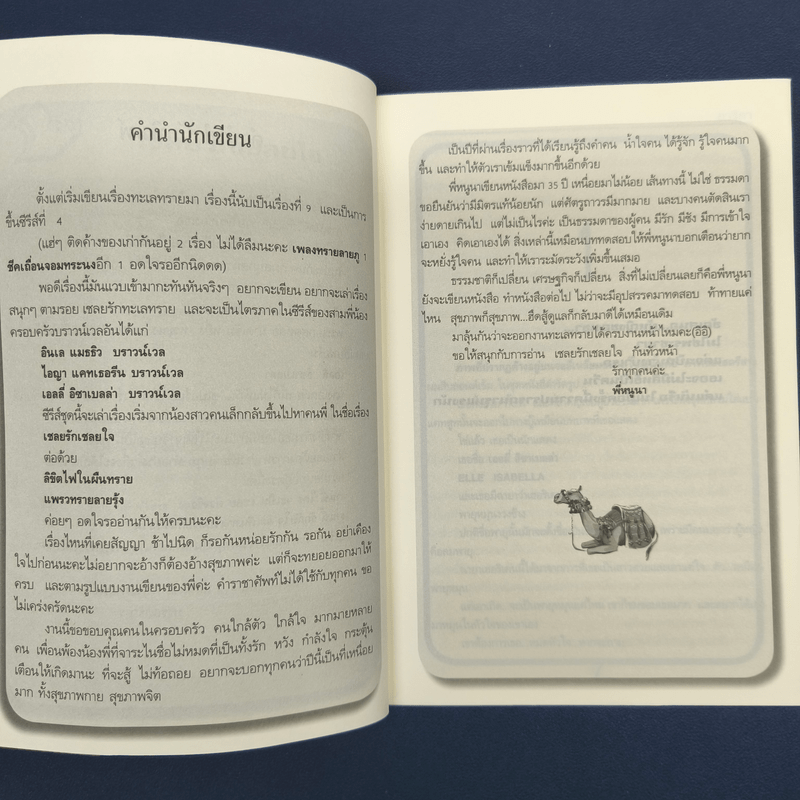 คำนำนักเขียน
ตั้งแต่เริ่มเขียนเรื่องทะเลทรายมา เรื่องนี้นับเป็นเรื่องที่ 9 และเป็นการ
ขึ้นซีรีส์ที่ 4
(แฮ่ๆ ติดค้างของเก่ากันอยู่ 2 เรื่อง ไม่ได้ลืมนะคะ เพลงทรายลายภู 1
ชีคเถื่อนจอมทระนงอีก 1 อดใจรออีกนิดดด)
พอดีเรื่องนี้มันแวบเข้ามากะทันหันจริงๆ อยากจะเขียน อยากจะเล่าเรื่อง
สนุกๆ ตามรอย เชลยรักทะเลทราย และจะเป็นไตรภาคในซีรีส์ของสามพี่น้อง
ครอบครัวบราวน์เวลอันได้แก่
อินเล แมธธิว บราวน์เวล
ไอญา แคทเธอรีน บราวน์เวล
เอลลี่ อิซาเบลล่า บราวน์เวล
ซีรีส์ชุดนี้จะเล่าเรื่องเริ่มจากน้องสาวคนเล็กกลับขึ้นไปหาคนพี่ ในชื่อเรื่อง
เชลยรักเชลยใจ
ต่อด้วย
ลิขิตไฟในผืนทราย
แพรวทรายลายรุ้ง
ค่อยๆ อดใจรออ่านกันให้ครบนะคะ
เรื่องไหนที่เคยสัญญา ช้าไปนิด ก็รอกันหน่อยรักกัน รอกัน อย่าเคือง
ใจไปก่อนนะคะไม่อยากจะอ้างก็ต้องอ้างสุขภาพค่ะ แต่ก็จะทยอยออกมาให้
ครบ และตามรูปแบบงานเขียนของพี่ค่ะ คำราชาศัพท์ไม่ได้ใช้กับทุกคน ขอ
ไม่เคร่งครัดนะคะ
งานนี้ขอขอบคุณคนในครอบครัว คนใกล้ตัว ใกล้ใจ มากมายหลาย
คน เพื่อนพ้องน้องพี่ที่จาระไนชื่อไม่หมดที่เป็นทั้งรัก หวัง กำลังใจ กระตุ้น
เตือนให้เกิดมานะ ที่จะสู้ ไม่ท้อถอย อยากจะบอกทุกคนว่าปีนี้เป็นปีที่เหนื่อย
มาก ทั้งสุขภาพกาย สุขภาพจิต
เป็นปีที่ผ่านเรื่องราวที่ได้เรียนรู้ถึงค่าคน น้ำใจคน ได้รู้จัก รู้ใจคนมาก
ขึ้น และทำให้ตัวเราเข้มแข็งมากขึ้นอีกด้วย
พี่หนูนาเขียนหนังสือมา 35 ปี เหนื่อยมาไม่น้อย เส้นทางนี้ ไม่ใช่ ธรรมดา
ขอยืนยันว่ามีมิตรแท้น้อยนัก แต่ศัตรูถาวรมีมากมาย และบางคนตัดสินเรา
ง่ายดายเกินไป แต่ไม่เป็นไรค่ะ เป็นธรรมดาของผู้คน มีรัก มีชัง มีการเข้าใจ
เอาเอง คิดเอาเองได้ สิ่งเหล่านี้เหมือนบททดสอบให้พี่หนูนาบอกเตือนว่ายาก
จะหยั่งรู้ใจคน และทำให้เราระมัดระวังเพิ่มขึ้นเสมอ
ธรรมชาติก็เปลี่ยน เศรษฐกิจก็เปลี่ยน สิ่งที่ไม่เปลี่ยนเลยก็คือพี่หนูนา
ยังจะเขียนหนังสือ ทำหนังสือต่อไป ไม่ว่าจะมีอุปสรรคมาทดสอบ ท้าทายแค่
ไหน สุขภาพก็สุขภาพ...ฮึดสู้ดูแลก็กลับมาดีได้เหมือนเดิม
มาลุ้นกันว่าจะออกงานทะเลทรายได้ครบงานหน้าไหมคะ(อิอิ)
ขอให้สนุกกับการอ่าน เชลยรักเชลยใจ กันทั่วหน้า
รักทุกคนค่ะ
พี่หนูนา